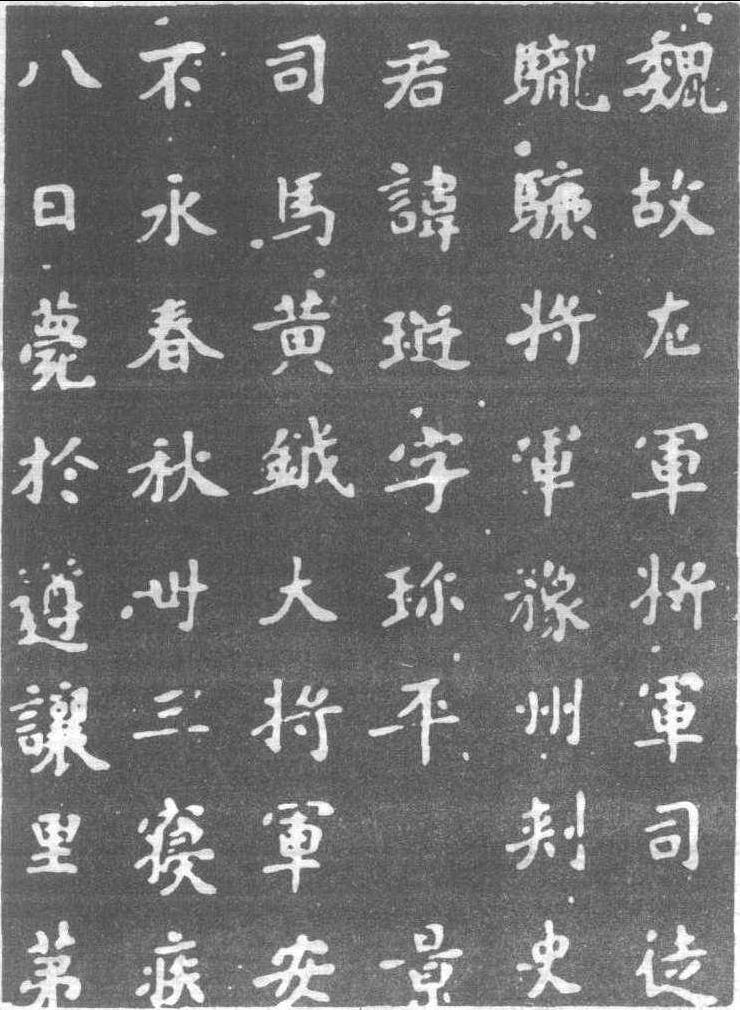 魏故左軍將軍司徒
䮾驤將軍豫州刺史
君諱珽字珍平　景
司馬黃鉞大將軍安
不永春秋卅三寢疾
八日薨於遵讓里第